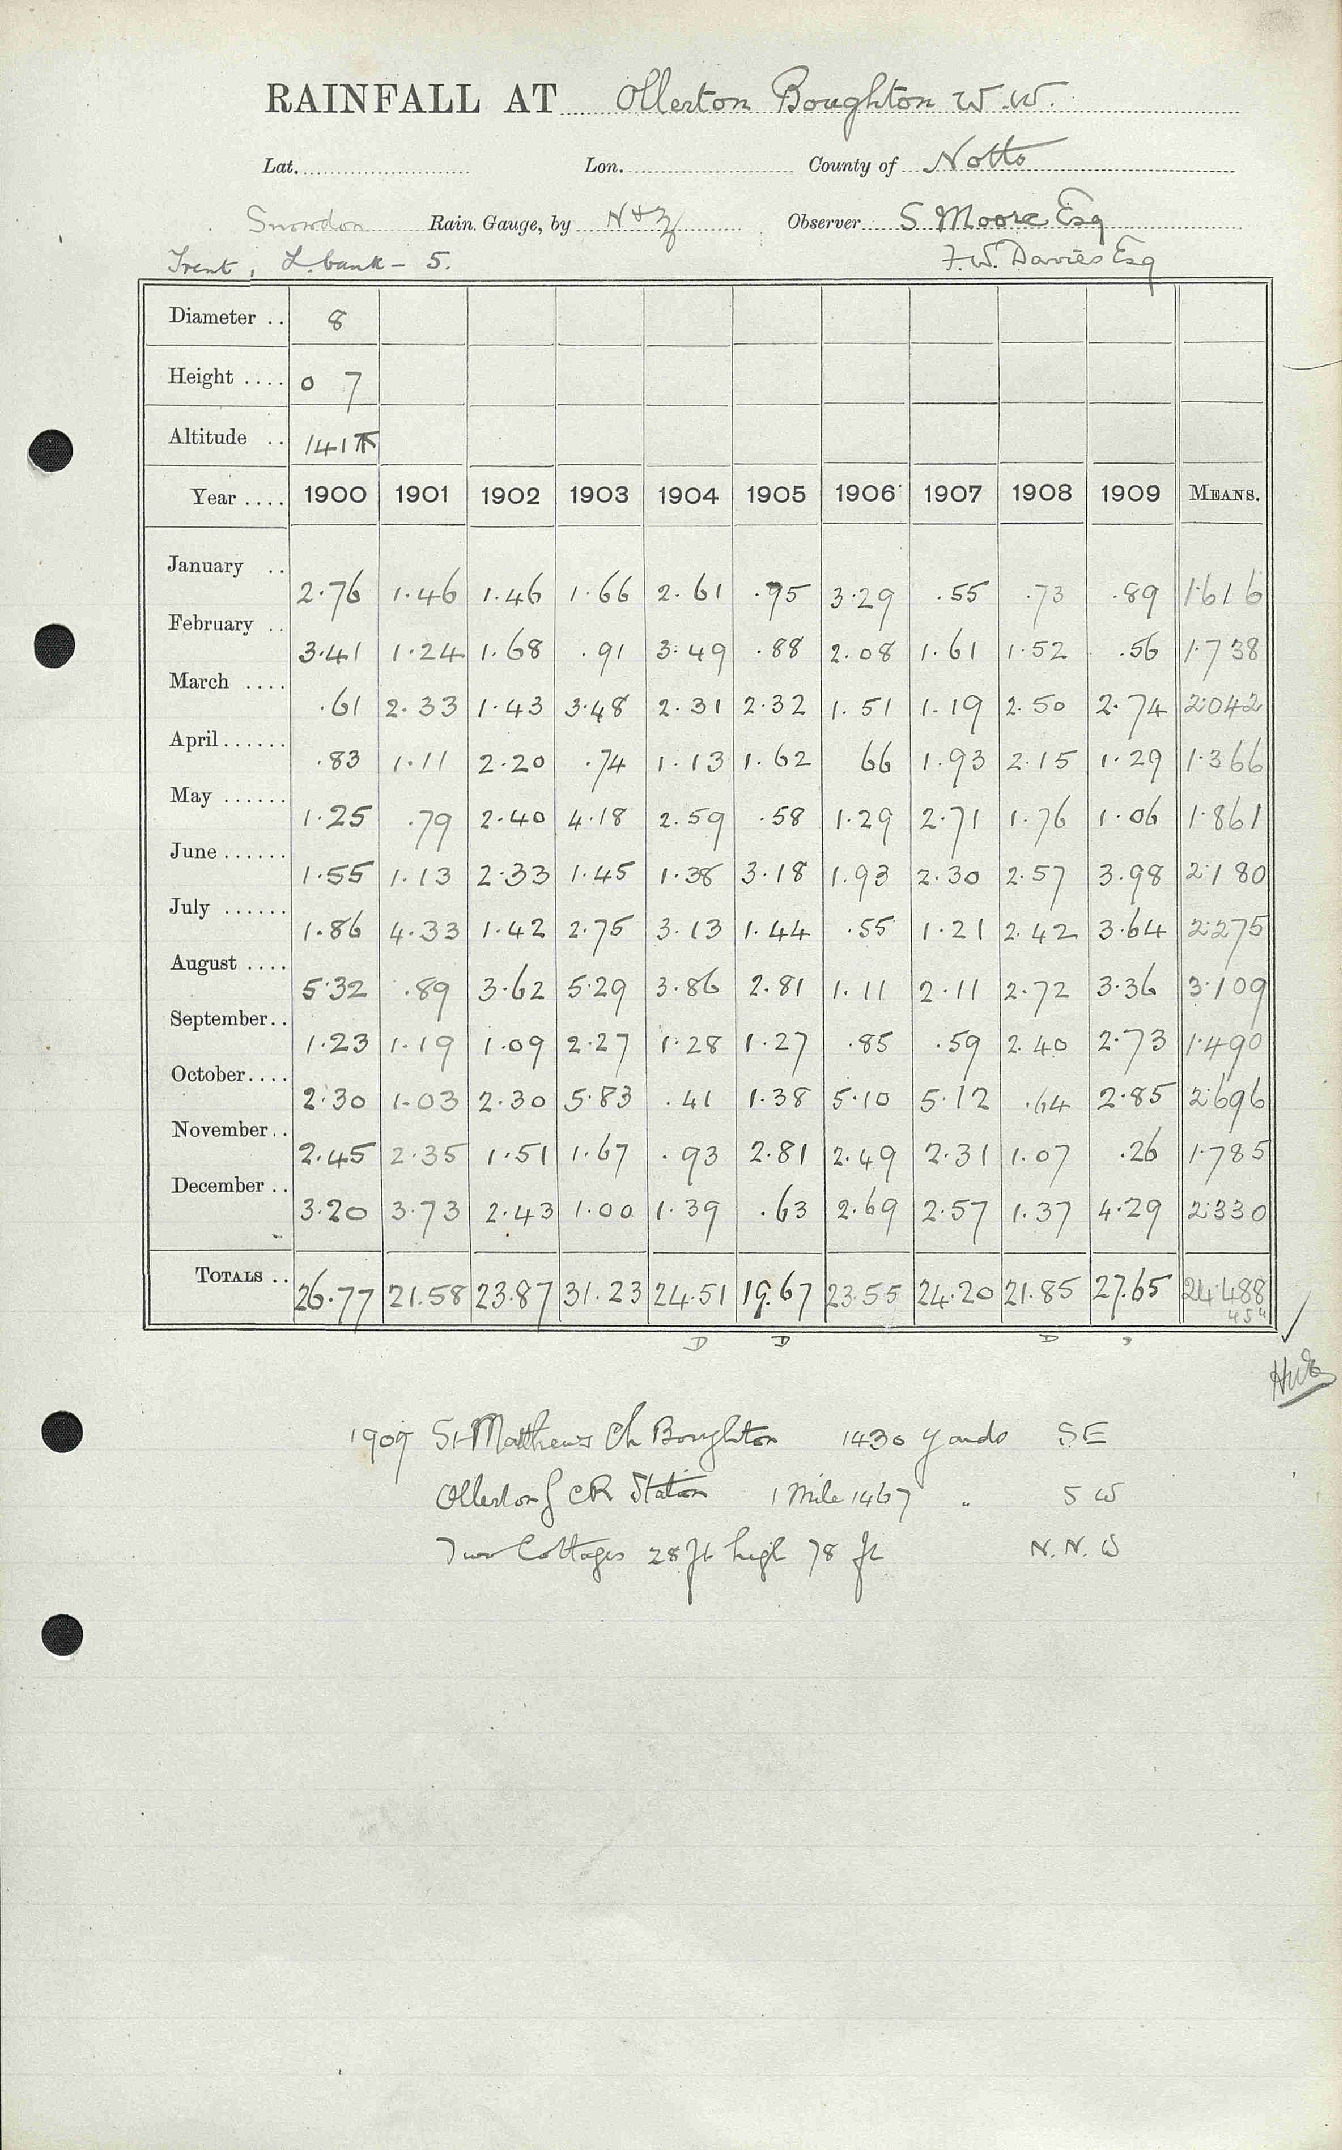 RAINFALL AT Ollerton Boughton W.W.
Lat. Lon. County of Notts
Snowdon Rain Gauge, by N & Z Observer S Moore Esq
Trent, L. bank - 5. F.W. Davies Esq
Diameter .. 8
Height .... 0 7
Altitude .. 141 ft
Year .... 1900 1901 1902 1903 1904 1905 1906 1907 1908 1909 MEANS.
January .. 2.76 1.46 1.46 1.66 2.61 .95 3.29 .55 .73 .89 1.616
February .. 3.41 1.24 1.68 .91 3.49 .88 2.08 1.61 1.52 .56 1.738
March .... .61 2.33 1.43 3.48 2.31 2.32 1.51 1.19 2.50 2.74 2.042
April...... .83 1.11 2.20 .74 1.13 1.62 66 1.93 2.15 1.29 1.366
May ...... 1.25 .79 2.40 4.18 2.59 .58 1.29 2.71 1.76 1.06 1.861
June ...... 1.55 1.13 2.33 1.45 1.38 3.18 1.93 2.30 2.57 3.98 2.180
July ...... 1.86 4.33 1.42 2.75 3.13 1.44 .55 1.21 2.42 3.64 2.275
August .... 5.32 .89 3.62 5.29 3.86 2.81 1.11 2.11 2.72 3.36 3.109
September.. 1.23 1.19 1.09 2.27 1.28 1.27 .85 .59 2.40 2.73 1.490
October.... 2.30 1.03 2.30 5.83 .41 1.38 5.10 5.12 .64 2.85 2.696
November.. 2.45 2.35 1.51 1.67 .93 2.81 2.49 2.31 1.07 .26 1.785
December .. 3.20 3.73 2.43 1.00 1.39 .63 2.69 2.57 1.37 4.29 2.330
TOTALS .. 26.77 21.58 23.87 31.23 24.51 19.67 23.55 24.20 21.85 27.65 24.488
D D D
1909 St Matthews Ch Boughton 1430 yards S.E
Ollerton G C R Station 1 Mile 1467 " S W
Two Cottages 28 ft high 78 ft N.N.W